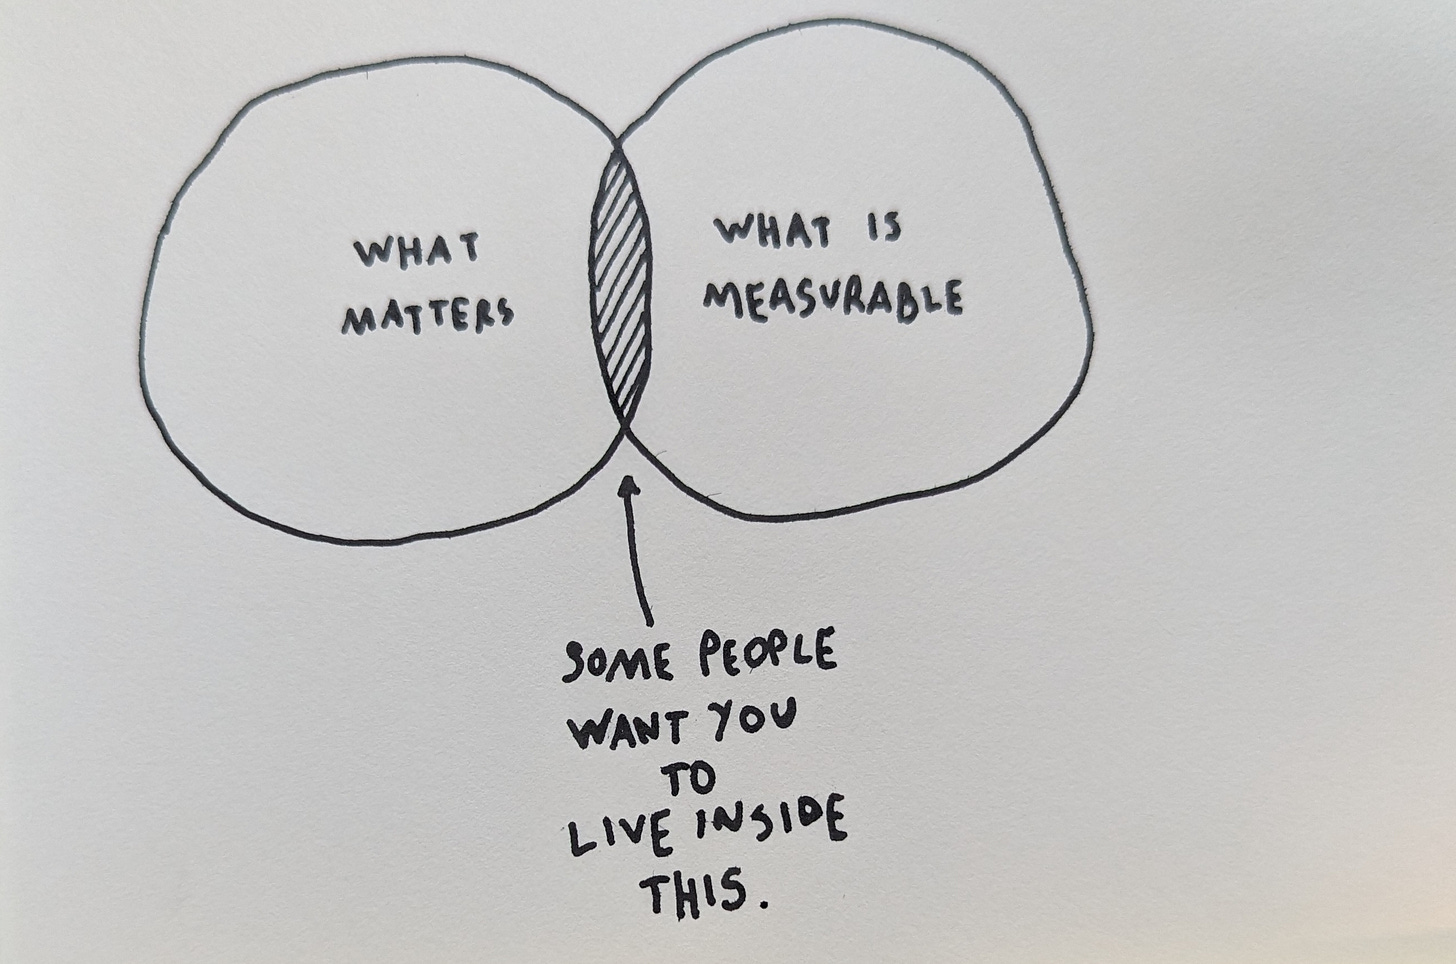 WHAT
MATTERS
WHAT IS
MEASURABLE
SOME PEOPLE
WANT YOU
TO
LIVE INSIDE
THIS.